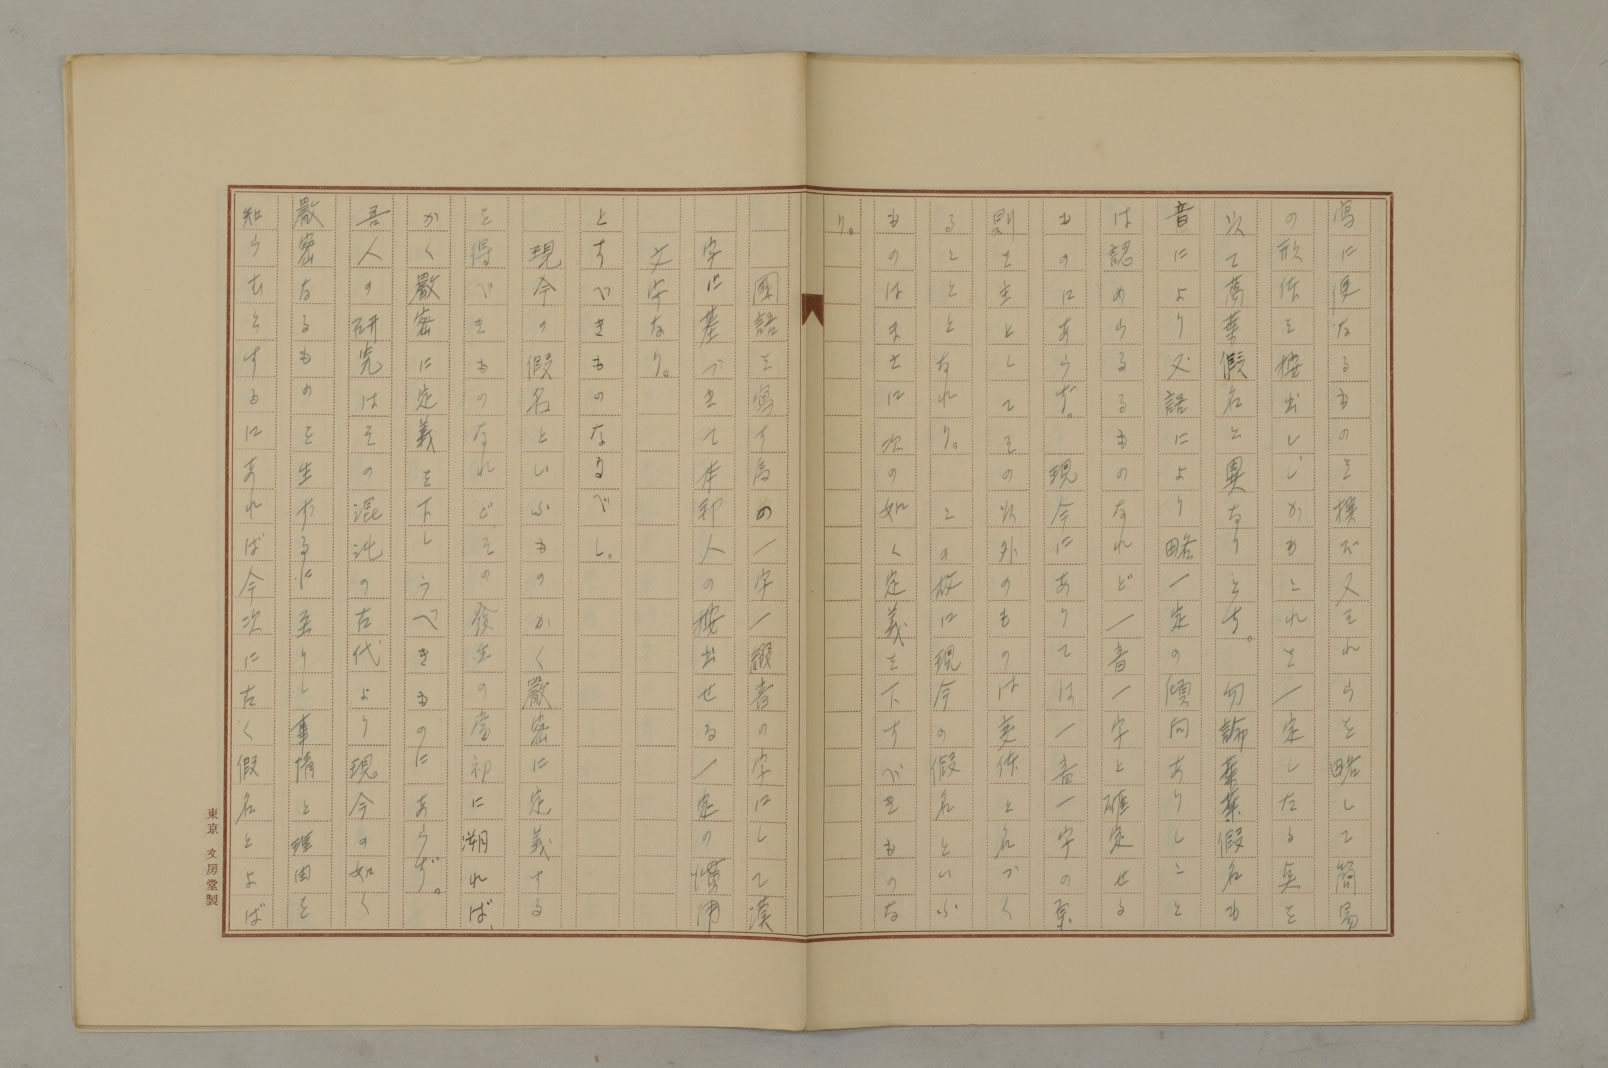 寫に便なるものを撰び又それらを略して簡易
の形体を按出ししかもこれを一定したる点を
以て萬葉假名と異なりとす。勿論萬葉假名も
音により又語により略一定の傾向ありしこと
は認めらるるものなれど一音一字と確定せる
ものにあらず。現今にありては一音一字の原
則を主としてその以外のものは変体と名づく
ることとなれり。この故に現今の假名といふ
ものはまさに次の如く定義を下すべきものな
り。
國語を寫す為の一字一綴音の字にして漢
字に基づきて本邦人の按出せる一定の慣用
文字なり。
とすべきものなるべし。
現今の假名といふものかく嚴密に定義する
を得べきものなれど、その發生の當初に溯れば、
かく嚴密に定義を下しうべきものにあらず。
吾人の研究はその混沌の古代より現今の如く
嚴密なるものを生ずるに至りし事情と理由を
知らむとするにあれば今次に古く假名とよば
東京 文房堂製